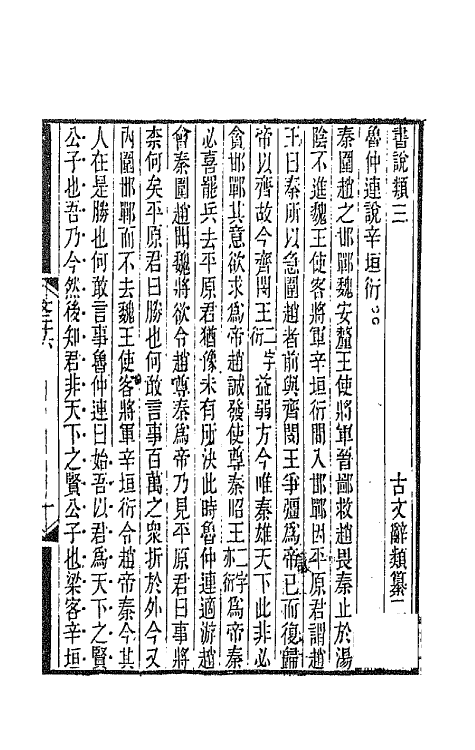 書說類三 古文辭類纂二
魯仲連說辛垣衍
秦圍趙之邯鄲魏安釐王使將軍晉鄙救趙畏秦止於湯
陰不進魏王使客將軍辛垣衍間入邯鄲因平原君謂趙
王曰秦所以急圍趙者前與齊閔王爭彊爲帝已而復歸
帝以齊故今齊閔王二字衍益弱方今唯秦雄天下此非必
貪邯鄲其意欲求爲帝趙誠發使尊秦昭王二字亦衍爲帝秦
必喜罷兵去平原君猶豫未有所決此時魯仲連適游趙
會秦圍趙聞魏將欲令趙尊秦爲帝乃見平原君曰事將
柰何矣平原君曰勝也何敢言事百萬之衆折於外今又
內圍邯鄲而不去魏王使客將軍辛垣衍令趙帝秦今其
人在是勝也何敢言事魯仲連曰始吾以君爲天下之賢
公子也吾乃今然後知君非天下之賢公子也梁客辛垣